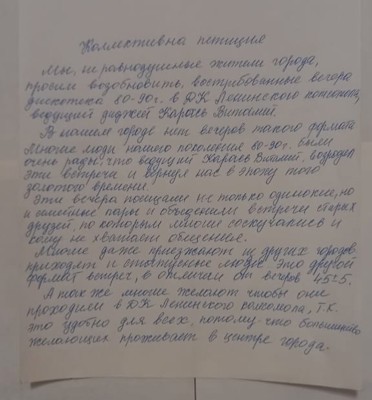 Коллективна петиция
Мы, не равнодушные жители города,
просим возобновить, востребованные вечера
дискотека 80-90г. в ДК Ленинского комсомола,
ведущий диджей Карась Виталий.
В нашем городе нет вечеров такого формата
Многие люди нашего поколения 80-90г. были
очень рады, что ведущий Карась Виталий, возродил
эти встречи и вернул нас в эпоху того
золотого времени!
Эти вечера посещали не только одинокие, но
и семейные пары и объединили встречи старых
друзей, по которым многие соскучались и
кому не хватает общения.
Многие даже приезжают из других городов
приходят и люди. Это другой
формат встреч, в отличии от вечеров 45+5.
А так же многие желают чтобы они
проходили в ДК Ленинского комсомола, Т.К.
это удобно для всех, потому-что большинство
желающих проживает в центре города.